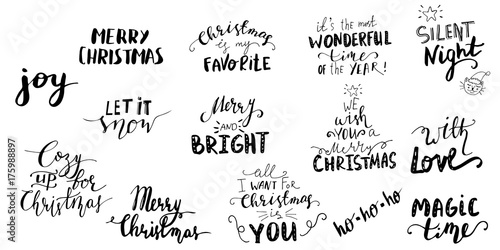 MERRY
CHRISTMAS
Christmas
is my
FAVORITE
it's the most
WONDERFUL
time
OF THE YEAR!
SILENT
Night
joy
LET IT
snow
Merry
AND
BRIGHT
WE
wish
YOU a
Merry
CHRISTMAS
with
Love
Cozy
up for
Christmas
Merry
Christmas
all
I WANT FOR
Christmas
is
YOU
ho-ho-ho
MAGIC
time
Adobe Stock | #175988897